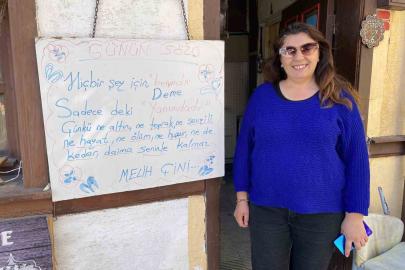 GÜNÜN SÖZÜ
Hiçbir şey için benimdir
Deme
Sadece deki yanımdadır
Çünkü ne altın, ne toprak, ne sevgili
ne hayat, ne ölüm, ne huzur, ne de
keder, daima seninle kalmaz
MELİH ÇİNİ...
E